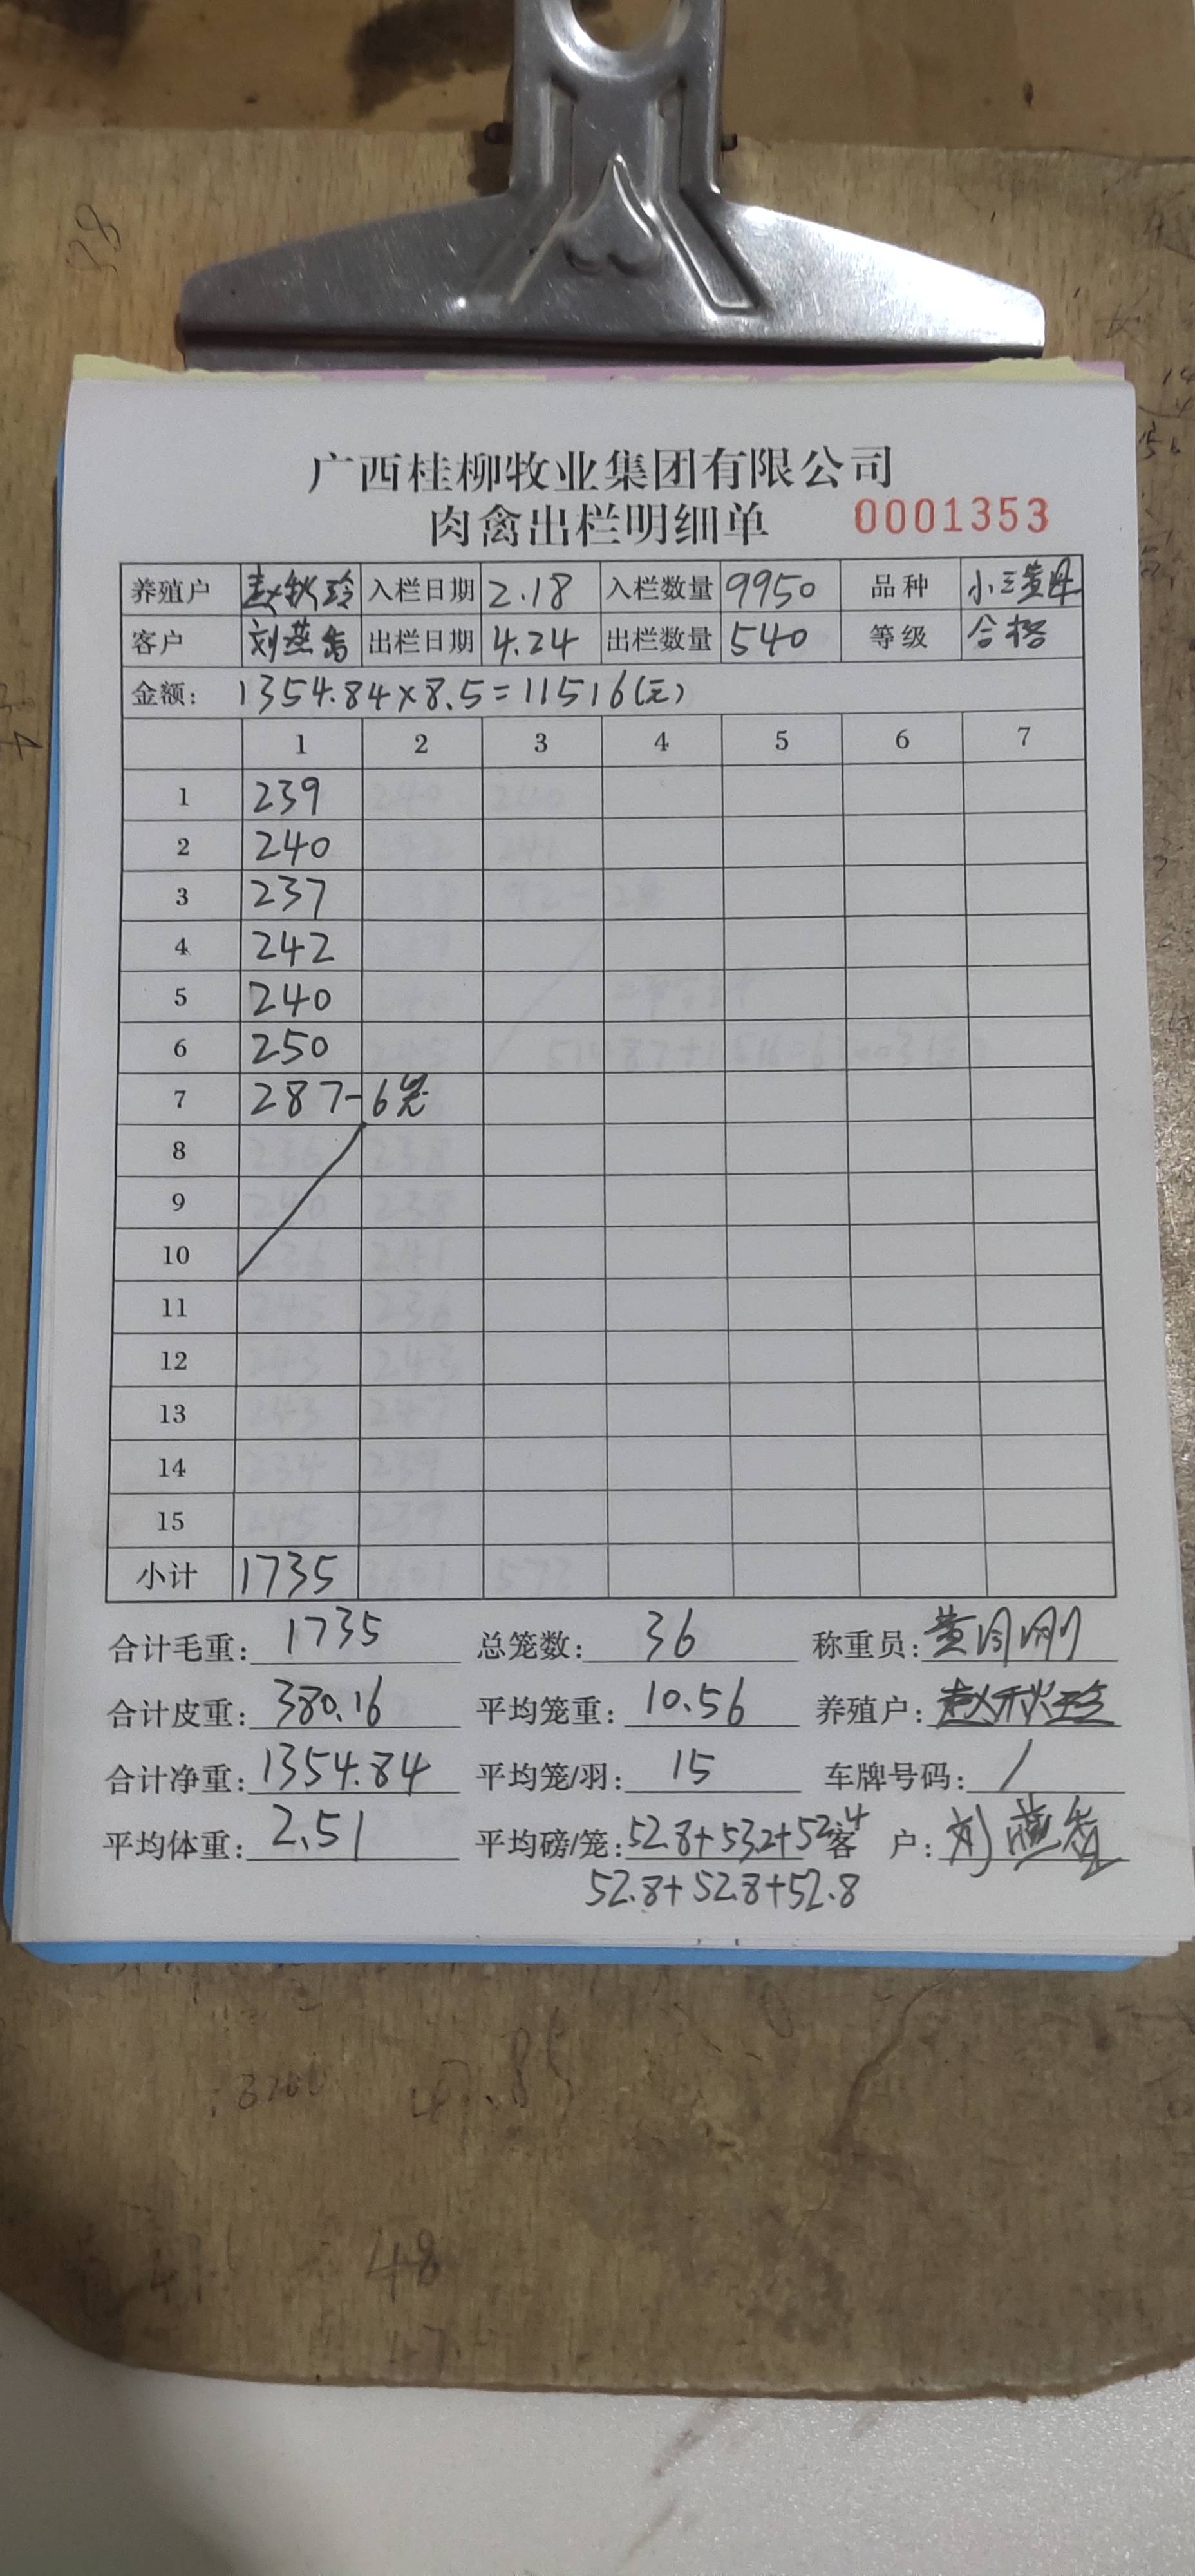 广西桂柳牧业集团有限公司
肉禽出栏明细单 0001353
养殖户 赵秋玲 入栏日期 2.18 入栏数量 9950 品种 小三黄母
客户 刘燕香 出栏日期 4.24 出栏数量 540 等级 合格
金额: 1354.84×8.5=11516(元)
1 2 3 4 5 6 7
1 239
2 240
3 237
4 242
5 240
6 250
7 287-6笼
8
9
10
11
12
13
14
15
小计 1735
合计毛重: 1735 总笼数: 36 称重员:
合计皮重: 380.16 平均笼重: 10.56 养殖户: 赵秋玲
合计净重: 1354.84 平均笼/羽: 15 车牌号码: /
平均体重: 2.51 平均磅/笼: 52.8+53.2+52.4 客户: 刘燕香
52.8+52.8+52.8